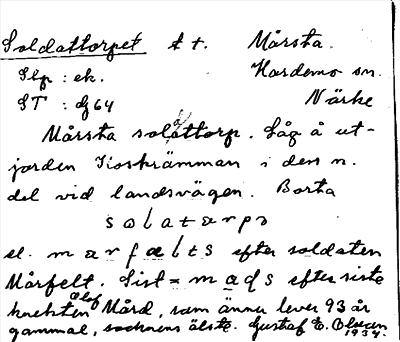 Soldattorpet t t. Mårsta.
Slp : ek. Hardemo sn.
ST : dg 64 Närke
Mårsta soldattorp. Låg å ut-
jorden Kiskrämman i den n.
del vid landsvägen. Borta
s o l a t a r p ɔ
el. m a r f æ l t s efter soldaten
Mårfelt. Sist = m a d s efter siste
knekten Olof Mård, som ännu lever 93 år
gammal, socknens älste. Gustaf E. Olsson
1934.